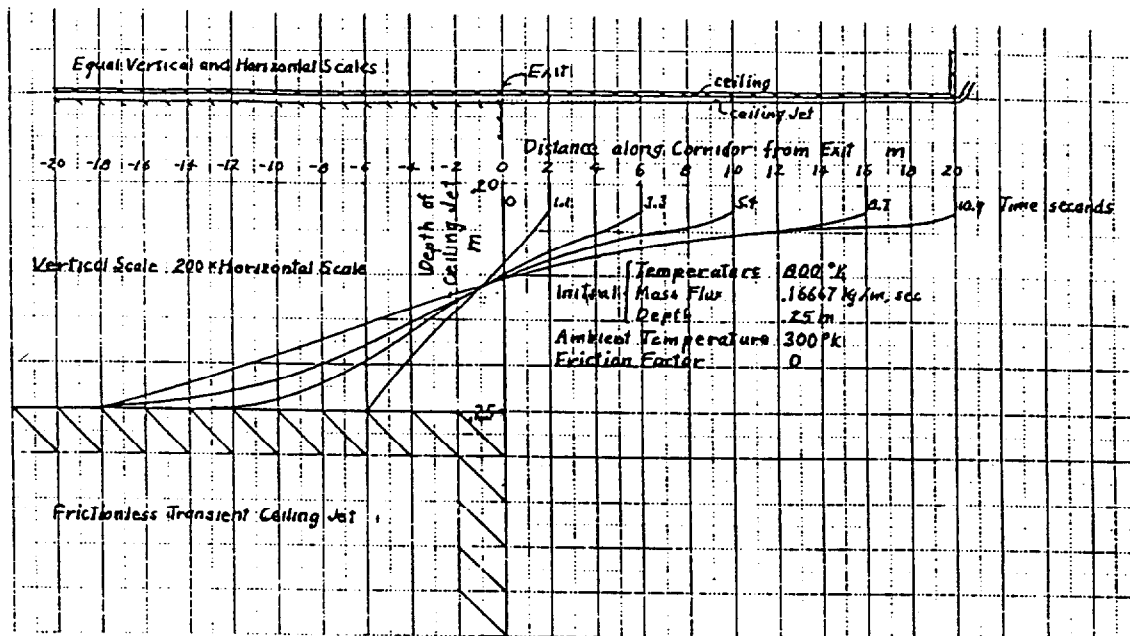 Equal Vertical and Horizontal Scales
Exit
ceiling
ceiling Jet
Distance along Corridor from Exit m
-20 -18 -16 -14 -12 -10 -8 -6 -4 -2 0 2 4 6 8 10 12 14 16 18 20
.20
0 1.1 3.3 5.4 8.7 10.9 Time seconds
Depth of
Ceiling Jet
m
Vertical Scale 200 x Horizontal Scale
Initial
Temperature 800 °K
Mass Flux .16667 kg/m, sec
Depth .25 m
Ambient Temperature 300 °K
Friction Factor 0
.25
Frictionless Transient Ceiling Jet